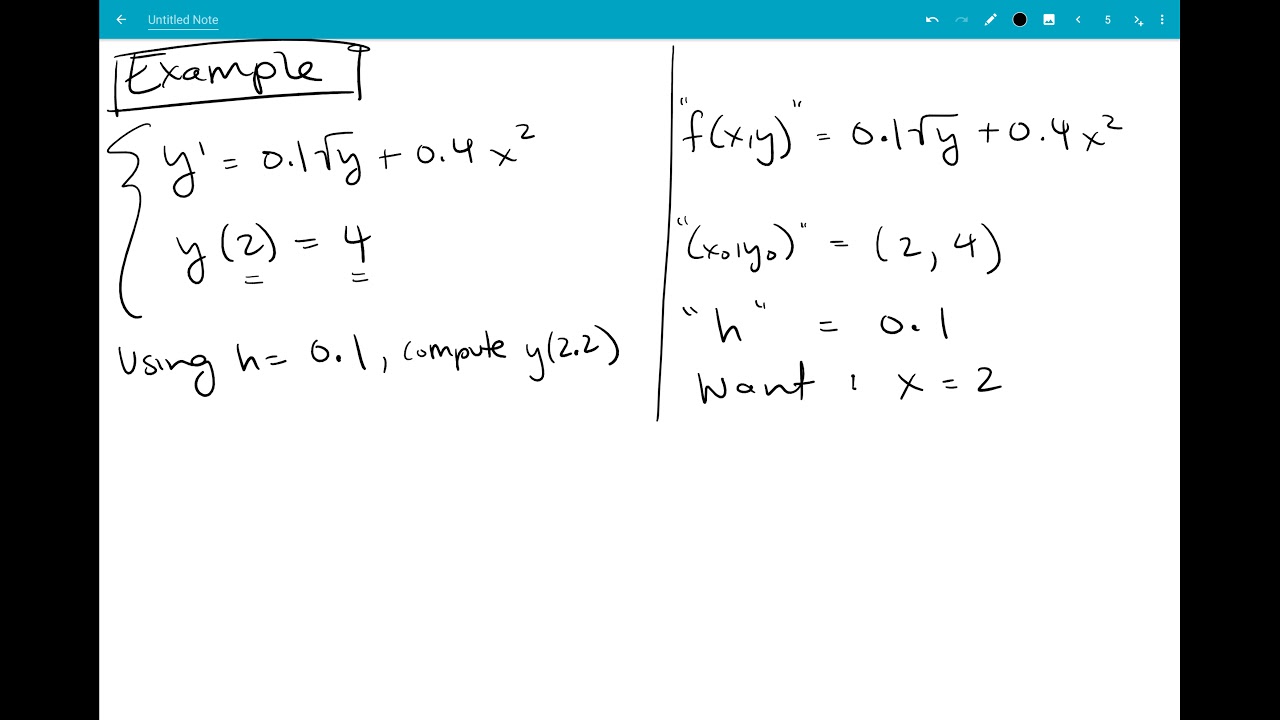 Untitled Note
5
Example
y' = 0.1√y + 0.4x²
y(2) = 4
Using h = 0.1, compute y(2.2)
"f(x,y)" = 0.1√y + 0.4x²
"(x₀,y₀)" = (2, 4)
"h" = 0.1
Want : x = 2